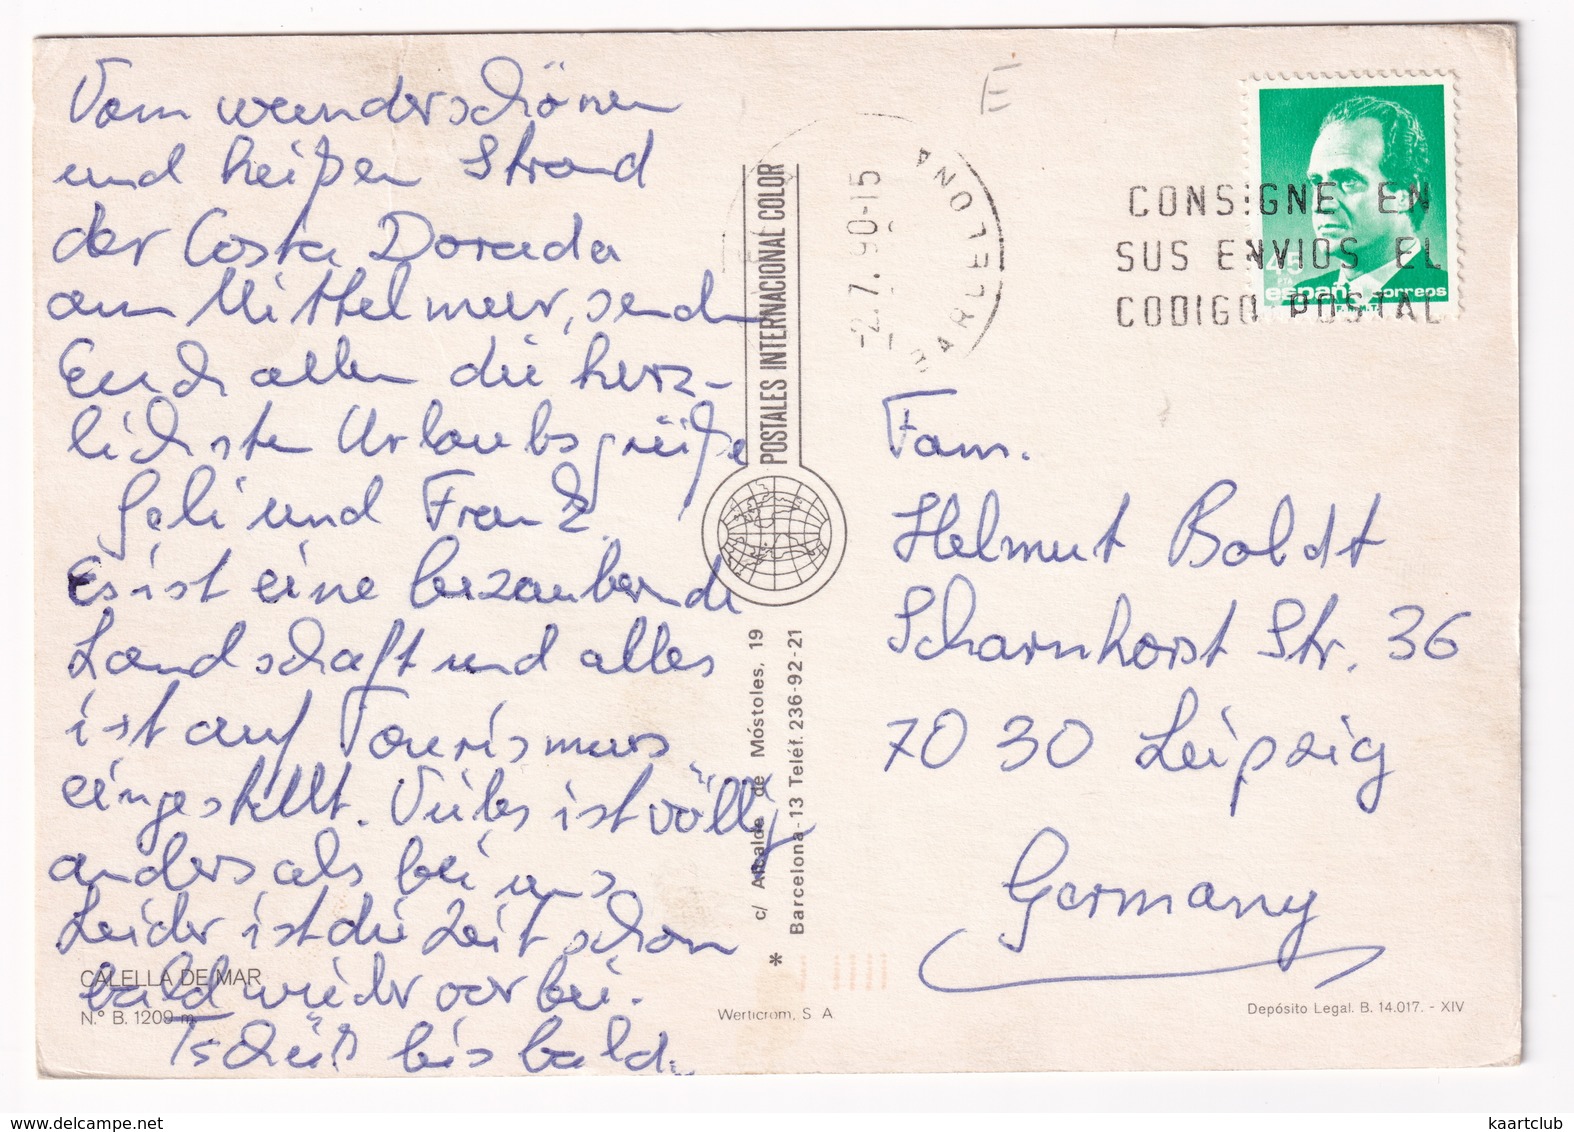 Vom wunderschönen
und heißen Strand
der Costa Dorada
am Mittelmeer, senden
Euch allen die herz-
lichsten Urlaubsgrüße
Geli und Franz.
Es ist eine bezaubernde
Landschaft und alles
ist auf Tourismus
eingestellt. Vieles ist völlig
anders als bei uns
Leider ist die Zeit schon
bald wieder vorbei.
Tschüß bis bald.
CALELLA DE MAR
N.º B. 1209 m.
POSTALES INTERNACIONAL COLOR
c/ Alcalde de Móstoles, 19
Barcelona-13 Teléf. 236-92-21
*
Werticrom, S A
E
BARCELONA
-2.7.90-15
CONSIGNE EN
SUS ENVIOS EL
CODIGO POSTAL
45
PTA
españa correos
F.N.M.T.
Fam.
Helmut Boldt
Scharnhorst Str. 36
7030 Leipzig
Germany
Depósito Legal. B. 14.017. - XIV
https://www.delcampe.net
kaartclub